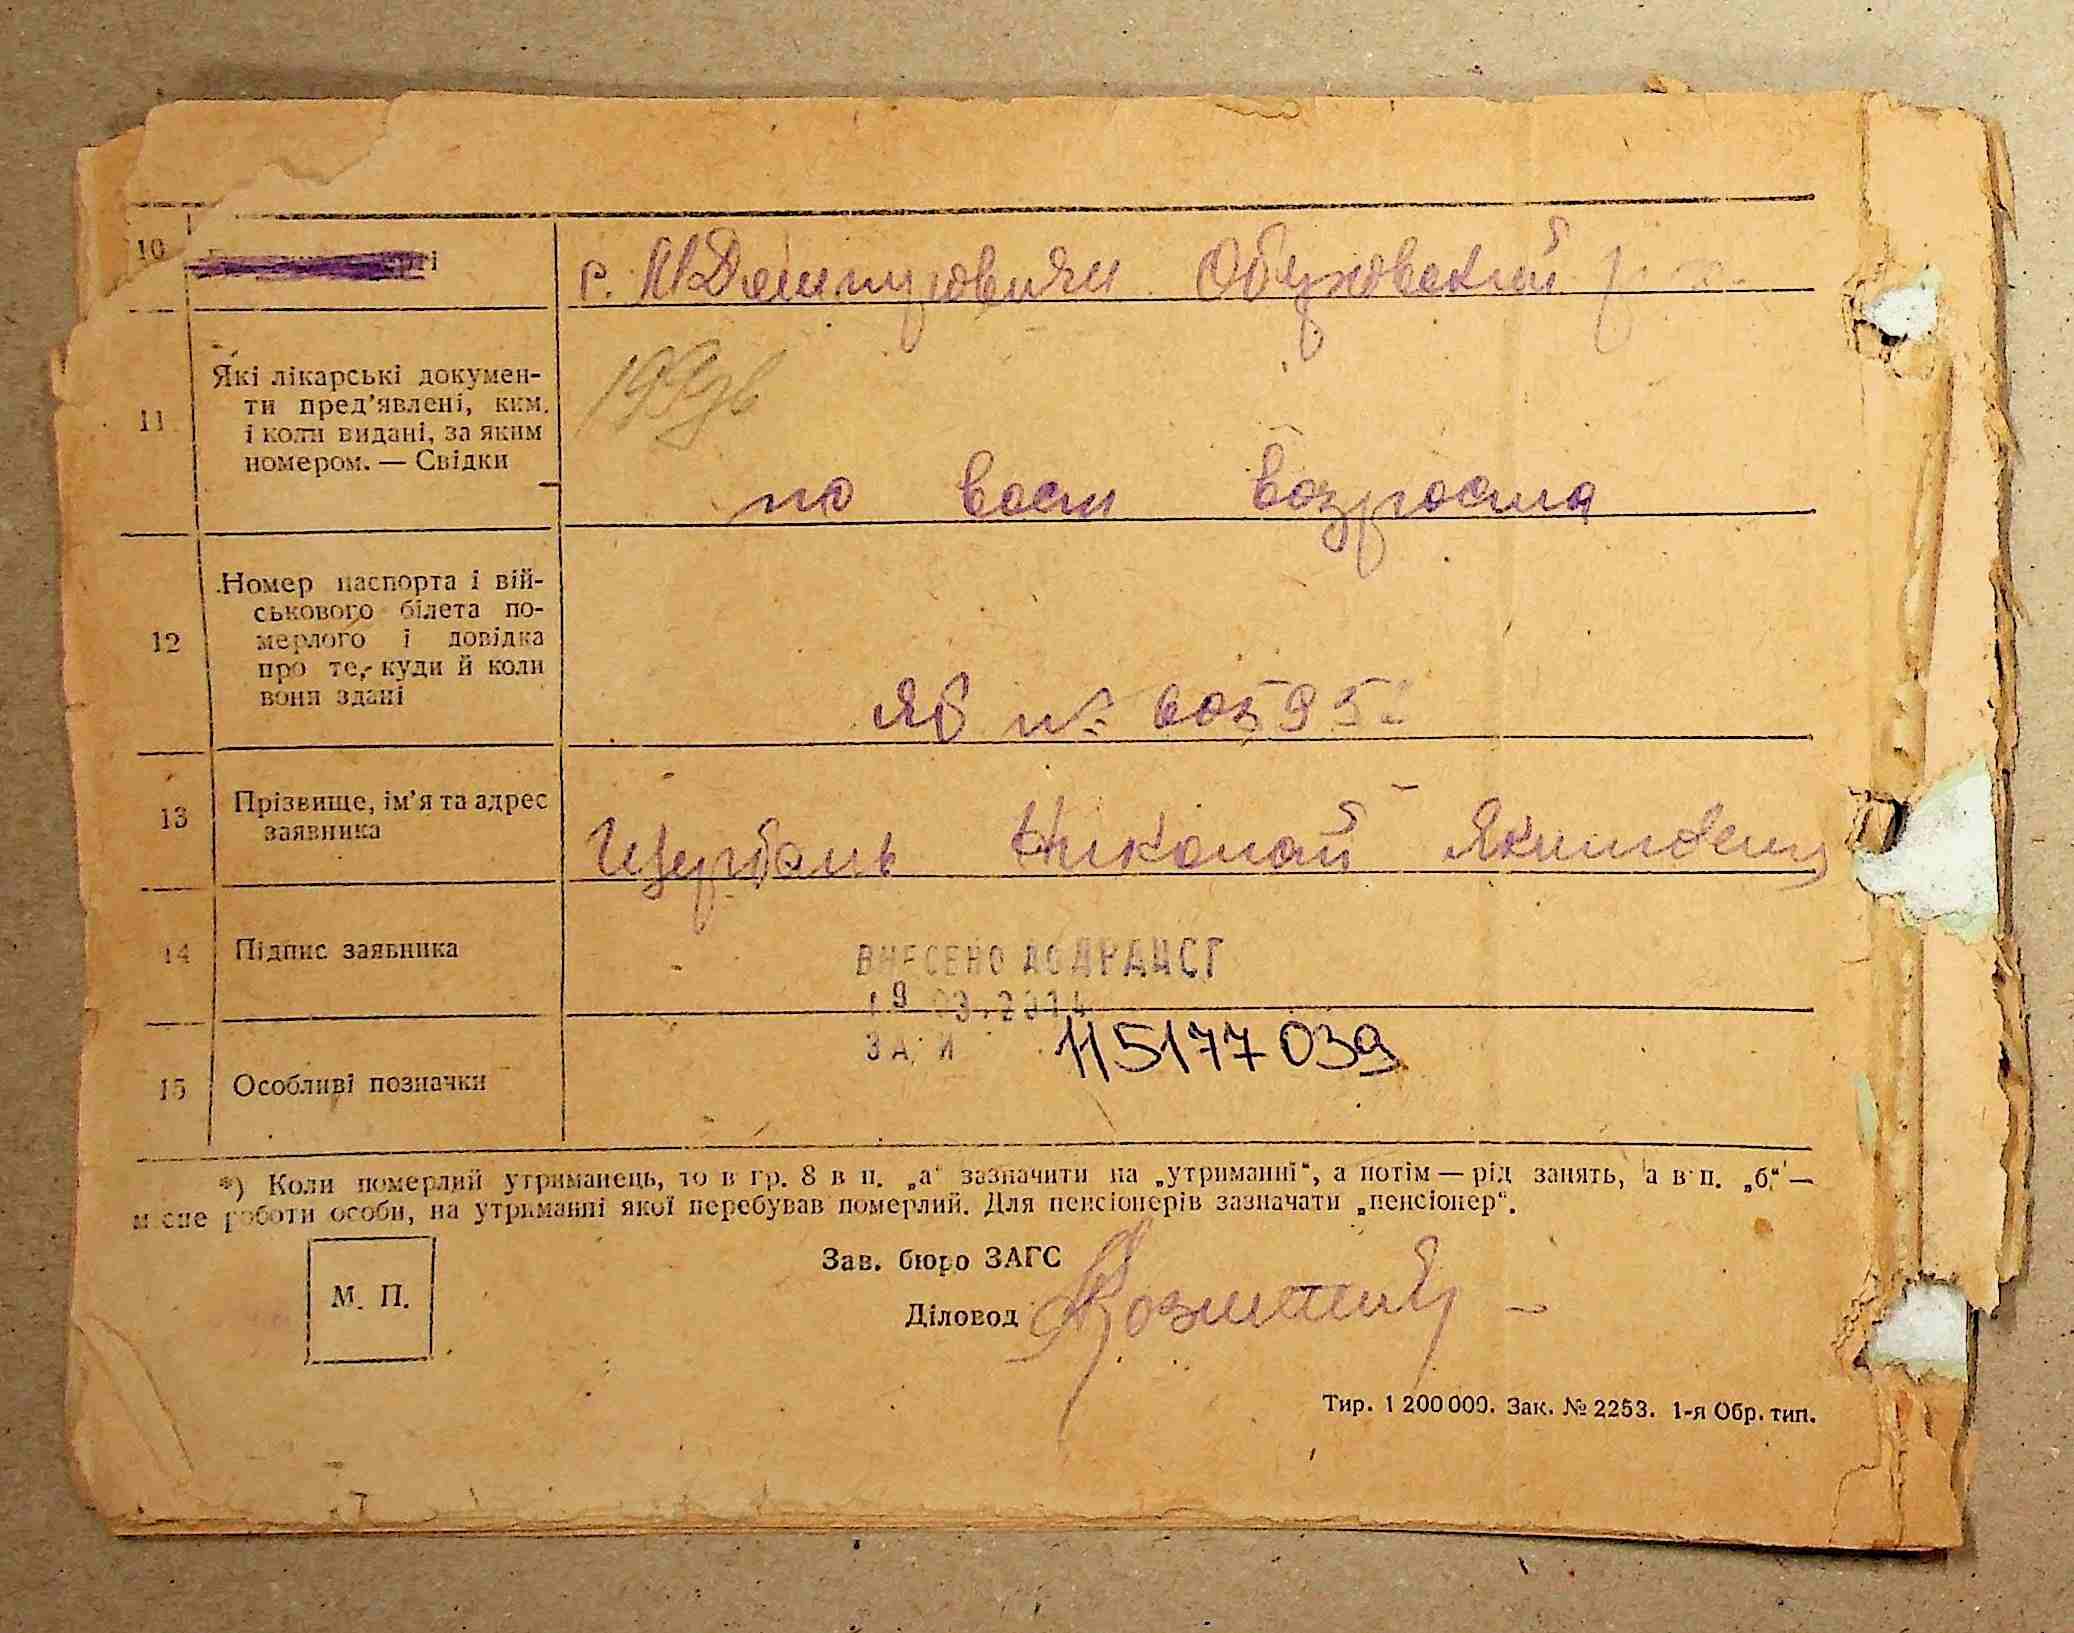 10
с. М Демитровичи Обуховский
11 Які лікарські докумен-
ти пред'явлені, ким
і коли видані, за яким
номером. — Свідки
по воен возроста
12 Номер паспорта і вій-
ськового білета по-
мерлого і довідка
про те, куди й коли
вони здані
13 Прізвище, ім'я та адрес
заявника
Щербань Николай
14 Підпис заявника
ВНЕСЕНО ДО ДРАЦСГ
19 03.2014
ЗА 115177039
15 Особливі позначки
*) Коли померлий утриманець, то в гр. 8 в п. „а“ зазначити на „утриманні“, а потім — рід занять, а в п. „б“ —
місце роботи особи, на утриманні якої перебував померлий. Для пенсіонерів зазначати „пенсіонер“.
М. П.
Зав. бюро ЗАГС
Діловод
Тир. 1 200 000. Зак. № 2253. 1-я Обр. тип.